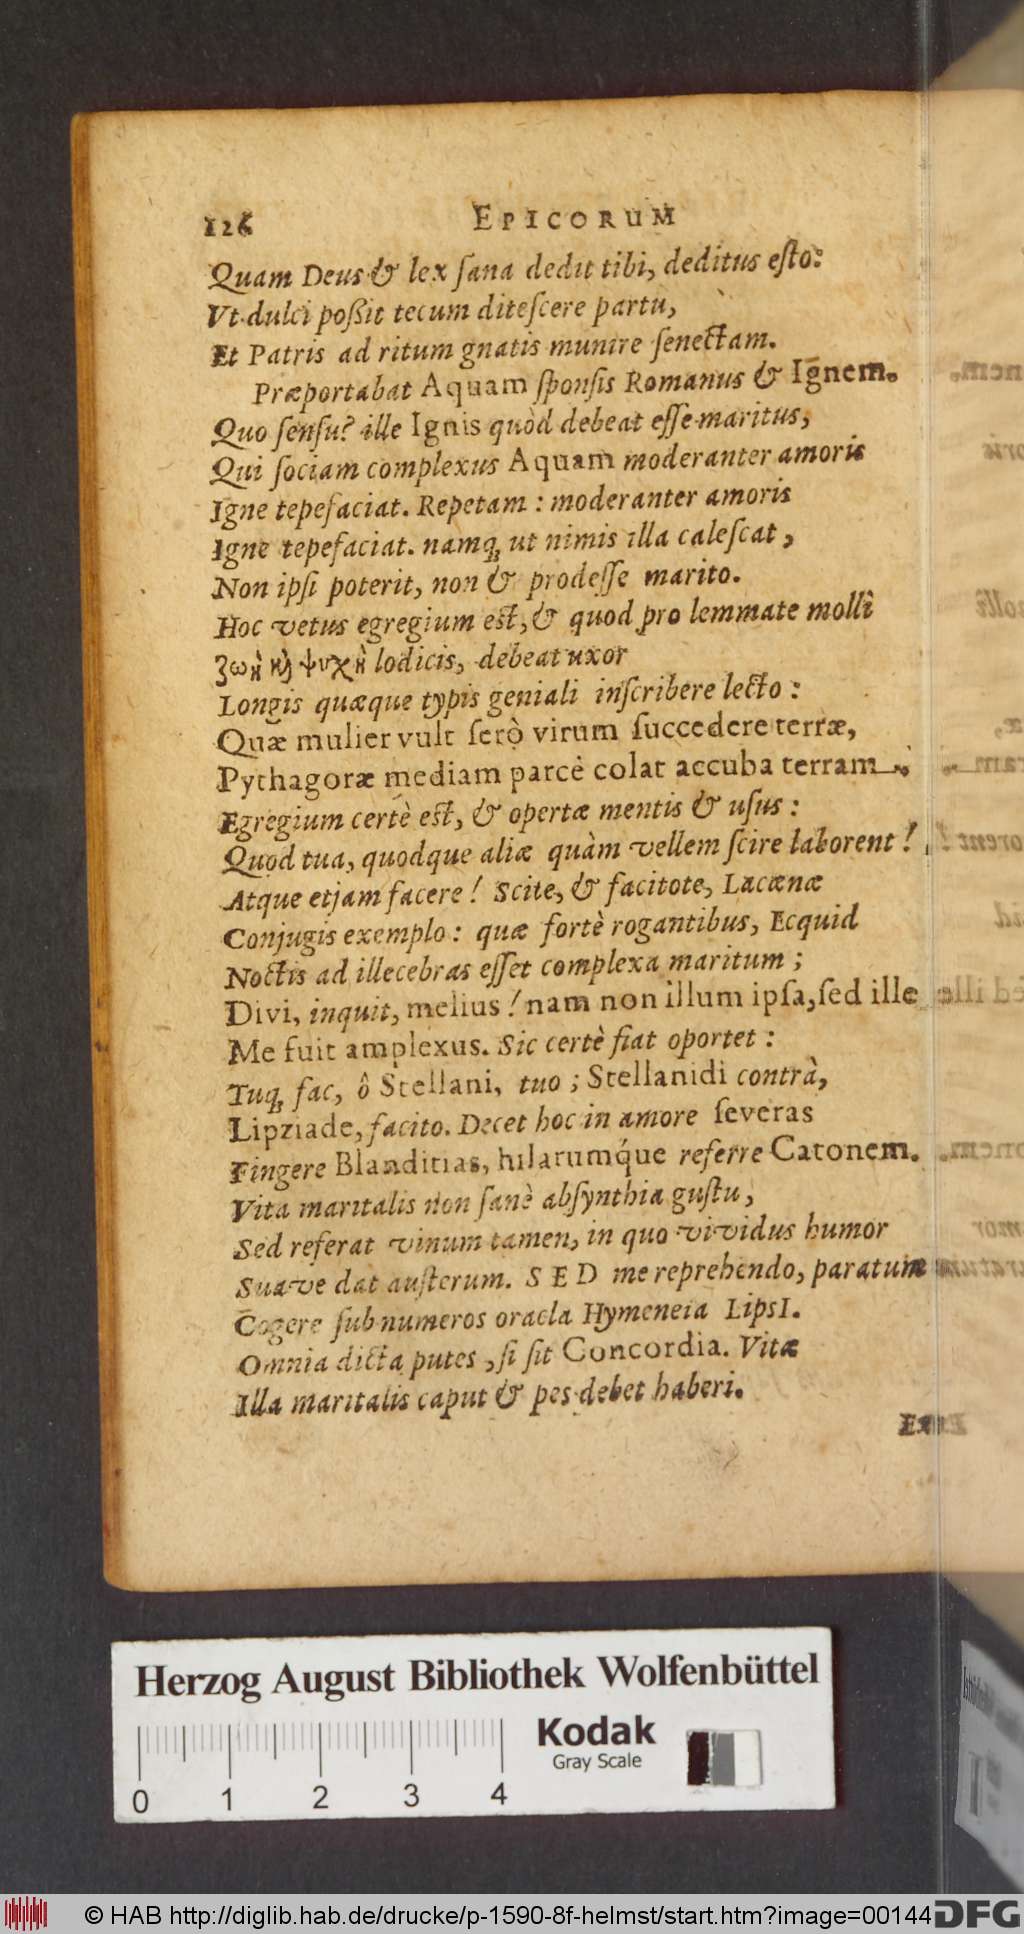 126 EPICORUM
Quam Deus & lex sana dedit tibi, deditus esto:
Ut dulci poßit tecum ditescere partu,
Et Patris ad ritum gnatis munire senectam.
Præportabat Aquam sponsis Romanus & Ignem.
Quo sensu? ille Ignis quòd debeat esse maritus,
Qui sociam complexus Aquam moderanter amoris
Igne tepefaciat. Repetam: moderanter amoris
Igne tepefaciat. namq́; ut nimis illa calescat,
Non ipsi poterit, non & prodesse marito.
Hoc vetus egregium est, & quod pro lemmate mollî
ζωὴ καὶ ψυχὴ lodicis, debeat uxor
Longis quæque typis geniali inscribere lecto:
Quæ mulier vult serò virum succedere terræ,
Pythagoræ mediam parcè colat accuba terram.
Egregium certè est, & opertæ mentis & usus:
Quod tua, quodque aliæ quàm vellem scire laborent!
Atque etjam facere! Scite, & facitote, Lacænæ
Conjugis exemplo: quæ fortè rogantibus, Ecquid
Noctis ad illecebras esset complexa maritum;
Divi, inquit, melius! nam non illum ipsa, sed ille
Me fuit amplexus. Sic certè fiat oportet:
Tuq́; fac, ô Stellani, tuo; Stellanidi contrà,
Lipziade, facito. Decet hoc in amore severas
Fingere Blanditias, hilarumq́ue referre Catonem.
Vita maritalis non sanè absynthia gustu,
Sed referat vinum tamen, in quo vividus humor
Suave dat austerum. SED me reprehendo, paratum
Cogere sub numeros oracla Hymeneia LipsI.
Omnia dicta putes, si sit Concordia. Vitæ
Illa maritalis caput & pes debet haberi.
Herzog August Bibliothek Wolfenbüttel
Kodak
Gray Scale
0 1 2 3 4
© HAB http://diglib.hab.de/drucke/p-1590-8f-helmst/start.htm?image=00144
DFG